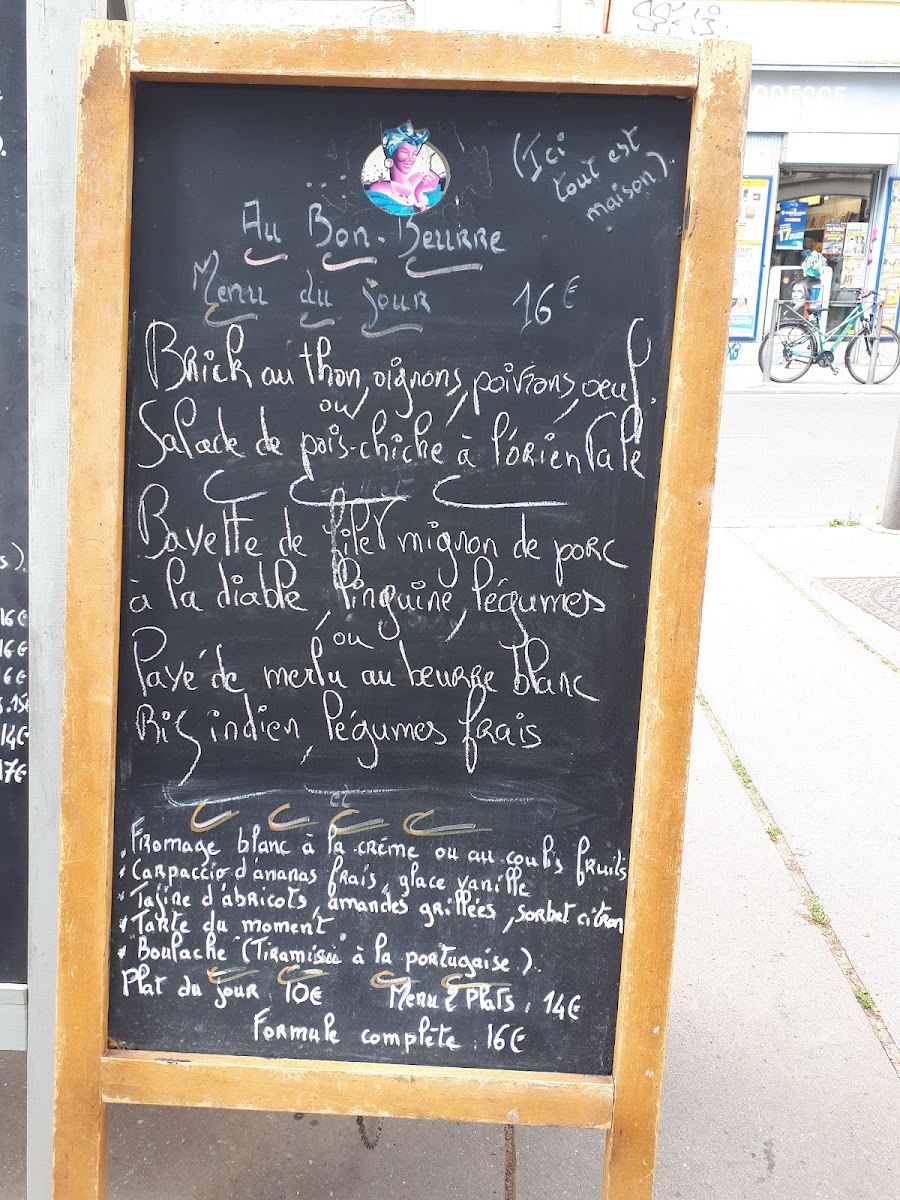 (Ici
tout est
maison).
Au Bon-Beurre
Menu du jour 16€
Brick au thon, oignons, poivrons, oeuf.
ou
Salade de pois-chiche à l'orientale
Bavette de filet mignon de porc
à la diable, linguine, légumes
ou
Pavé de merlu au beurre blanc
Riz indien, légumes frais
et
. Fromage blanc à la crème ou au coulis fruits
* Carpaccio d'ananas frais, glace vanille
* Tajine d'abricots, amandes grillées, sorbet citron
* Tarte du moment
* "Boulache" (Tiramisu à la portugaise).
Plat du jour : 10€ Menu 2 Plats : 14€
Formule complète : 16€
s).
16€
16€
16€
14€
17€
17